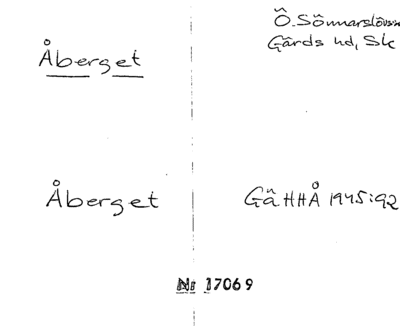 Åberget
Ö. Sönnarslövs
Gärds hd, Sk
Åberget
Gä HHÅ 1945:92
Nr 17069